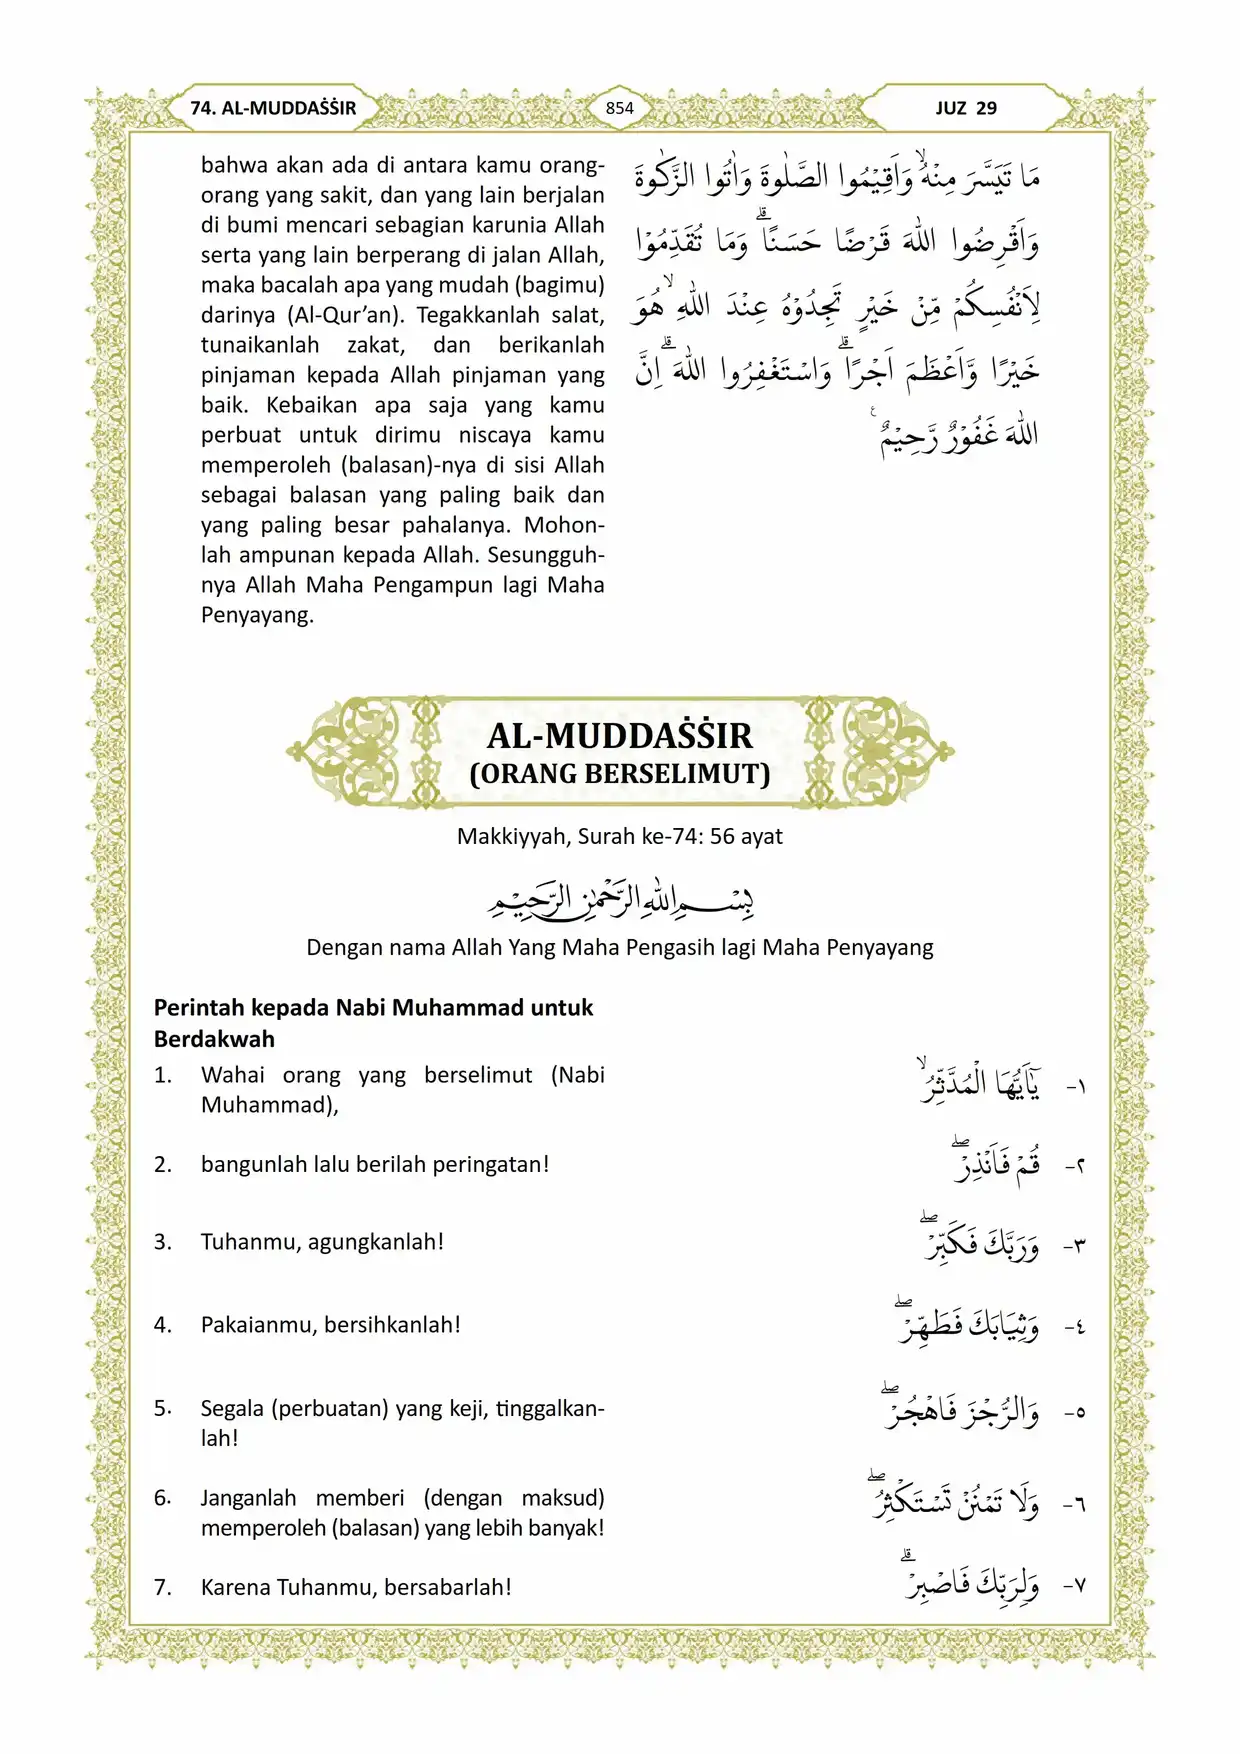 74. AL-MUDDAṠṠIR
854
JUZ 29
bahwa akan ada di antara kamu orang-
orang yang sakit, dan yang lain berjalan
di bumi mencari sebagian karunia Allah
serta yang lain berperang di jalan Allah,
maka bacalah apa yang mudah (bagimu)
darinya (Al-Qur’an). Tegakkanlah salat,
tunaikanlah zakat, dan berikanlah
pinjaman kepada Allah pinjaman yang
baik. Kebaikan apa saja yang kamu
perbuat untuk dirimu niscaya kamu
memperoleh (balasan)-nya di sisi Allah
sebagai balasan yang paling baik dan
yang paling besar pahalanya. Mohon-
lah ampunan kepada Allah. Sesungguh-
nya Allah Maha Pengampun lagi Maha
Penyayang.
مَا تَيَسَّرَ مِنْهُۙ وَاَقِيْمُوا الصَّلٰوةَ وَاٰتُوا الزَّكٰوةَ
وَاَقْرِضُوا اللّٰهَ قَرْضًا حَسَنًاۗ وَمَا تُقَدِّمُوْا
لِاَنْفُسِكُمْ مِّنْ خَيْرٍ تَجِدُوْهُ عِنْدَ اللّٰهِ ۙهُوَ
خَيْرًا وَّاَعْظَمَ اَجْرًاۗ وَاسْتَغْفِرُوا اللّٰهَ ۗاِنَّ
اللّٰهَ غَفُوْرٌ رَّحِيْمٌ ࣖ
AL-MUDDAṠṠIR
(ORANG BERSELIMUT)
Makkiyyah, Surah ke-74: 56 ayat
بِسْمِ اللّٰهِ الرَّحْمٰنِ الرَّحِيْمِ
Dengan nama Allah Yang Maha Pengasih lagi Maha Penyayang
Perintah kepada Nabi Muhammad untuk
Berdakwah
1. Wahai orang yang berselimut (Nabi
Muhammad),
١- يٰٓاَيُّهَا الْمُدَّثِّرُۙ
2. bangunlah lalu berilah peringatan!
٢- قُمْ فَاَنْذِرْۖ
3. Tuhanmu, agungkanlah!
٣- وَرَبَّكَ فَكَبِّرْۖ
4. Pakaianmu, bersihkanlah!
٤- وَثِيَابَكَ فَطَهِّرْۖ
5. Segala (perbuatan) yang keji, tinggalkan-
lah!
٥- وَالرُّجْزَ فَاهْجُرْۖ
6. Janganlah memberi (dengan maksud)
memperoleh (balasan) yang lebih banyak!
٦- وَلَا تَمْنُنْ تَسْتَكْثِرُۖ
7. Karena Tuhanmu, bersabarlah!
٧- وَلِرَبِّكَ فَاصْبِرْۗ